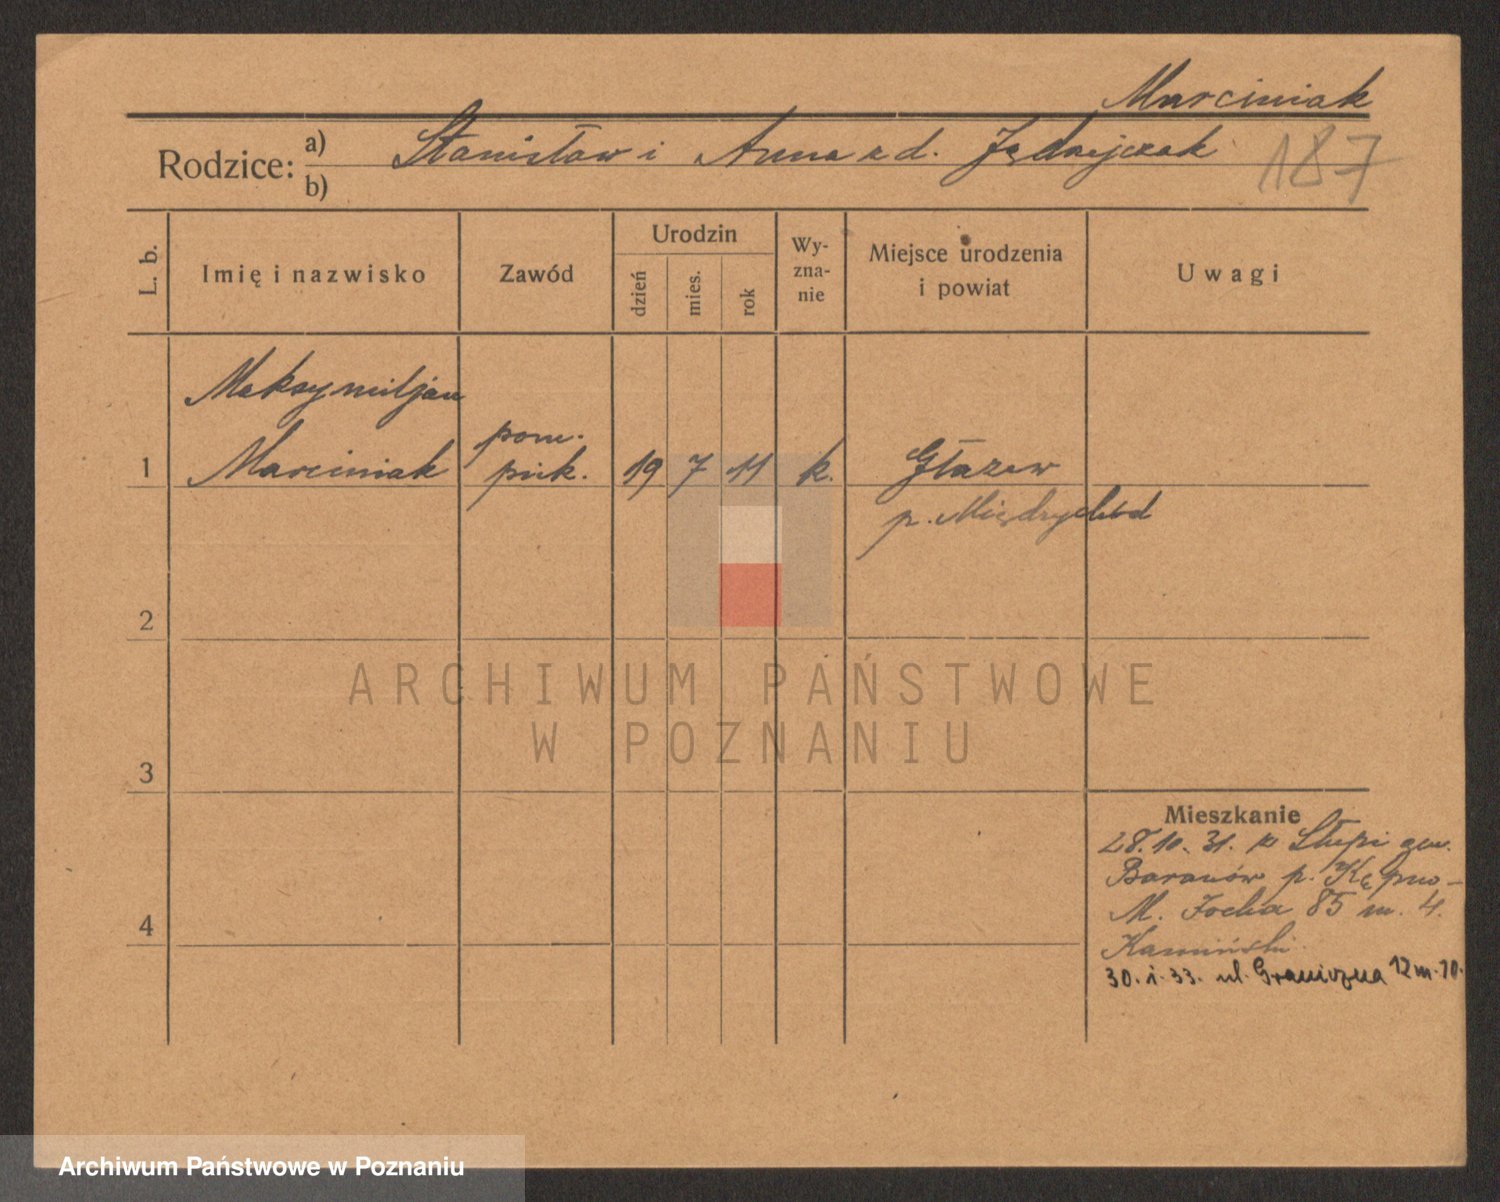 Marciniak
Rodzice: a) Stanisław i Anna z d. Jędrzejczak
b)
187
L. b.
Imię i nazwisko
Zawód
Urodzin
dzień
mies.
rok
Wy-
zna-
nie
Miejsce urodzenia
i powiat
Uwagi
Maksymiljan
1 Marciniak pom. piek. 19 7 11 k. Głażew
p. Międzychód
2
3
4
ARCHIWUM PAŃSTWOWE
W POZNANIU
Mieszkanie
28.10.31. z Słupi gm.
Baranów p. Kępno –
M. Focha 85 m. 4.
Kamiński
30. I. 33. ul. Graniczna 12 m. 10.
Archiwum Państwowe w Poznaniu